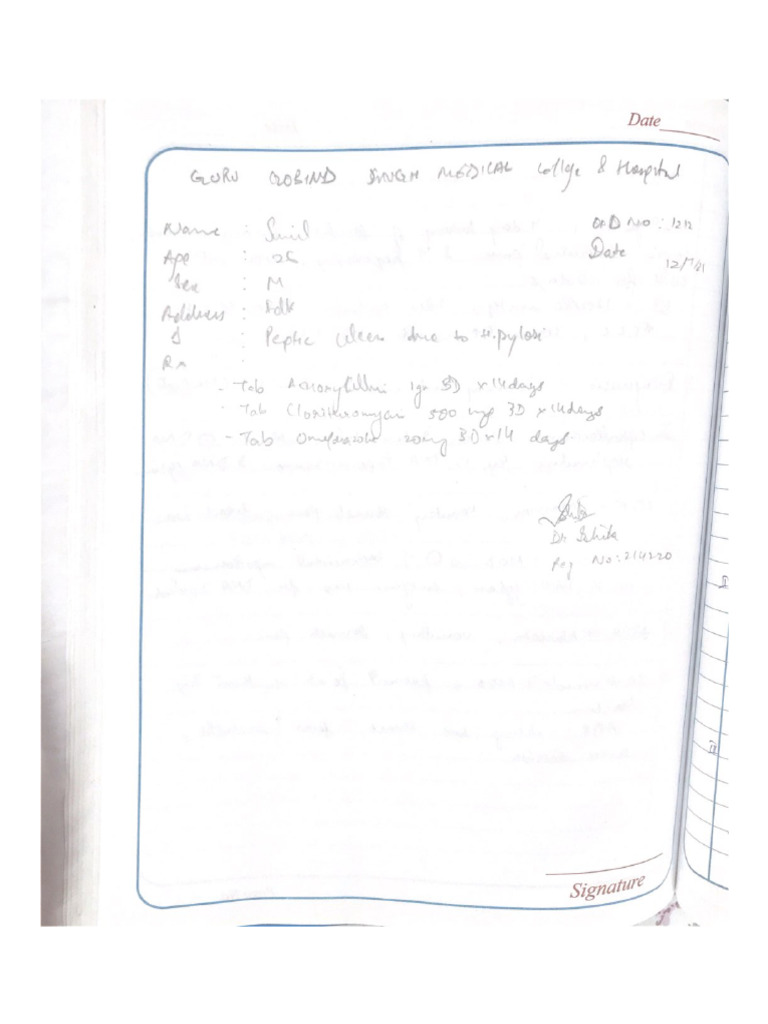 Date
GURU GOBIND SINGH MEDICAL College & Hospital
Name : Sunil
OPD NO : 1212
Age : 26
Date
Sex : M
Address : Fdk
Δ : Peptic Ulcer due to H.pylori
Rx
- Tab 1gm BD x 14 days
- Tab 500 mg BD x 14 days
- Tab Omeprazole 20mg BD x 14 days
Dr. Ishita
Reg No: 214220
Signature